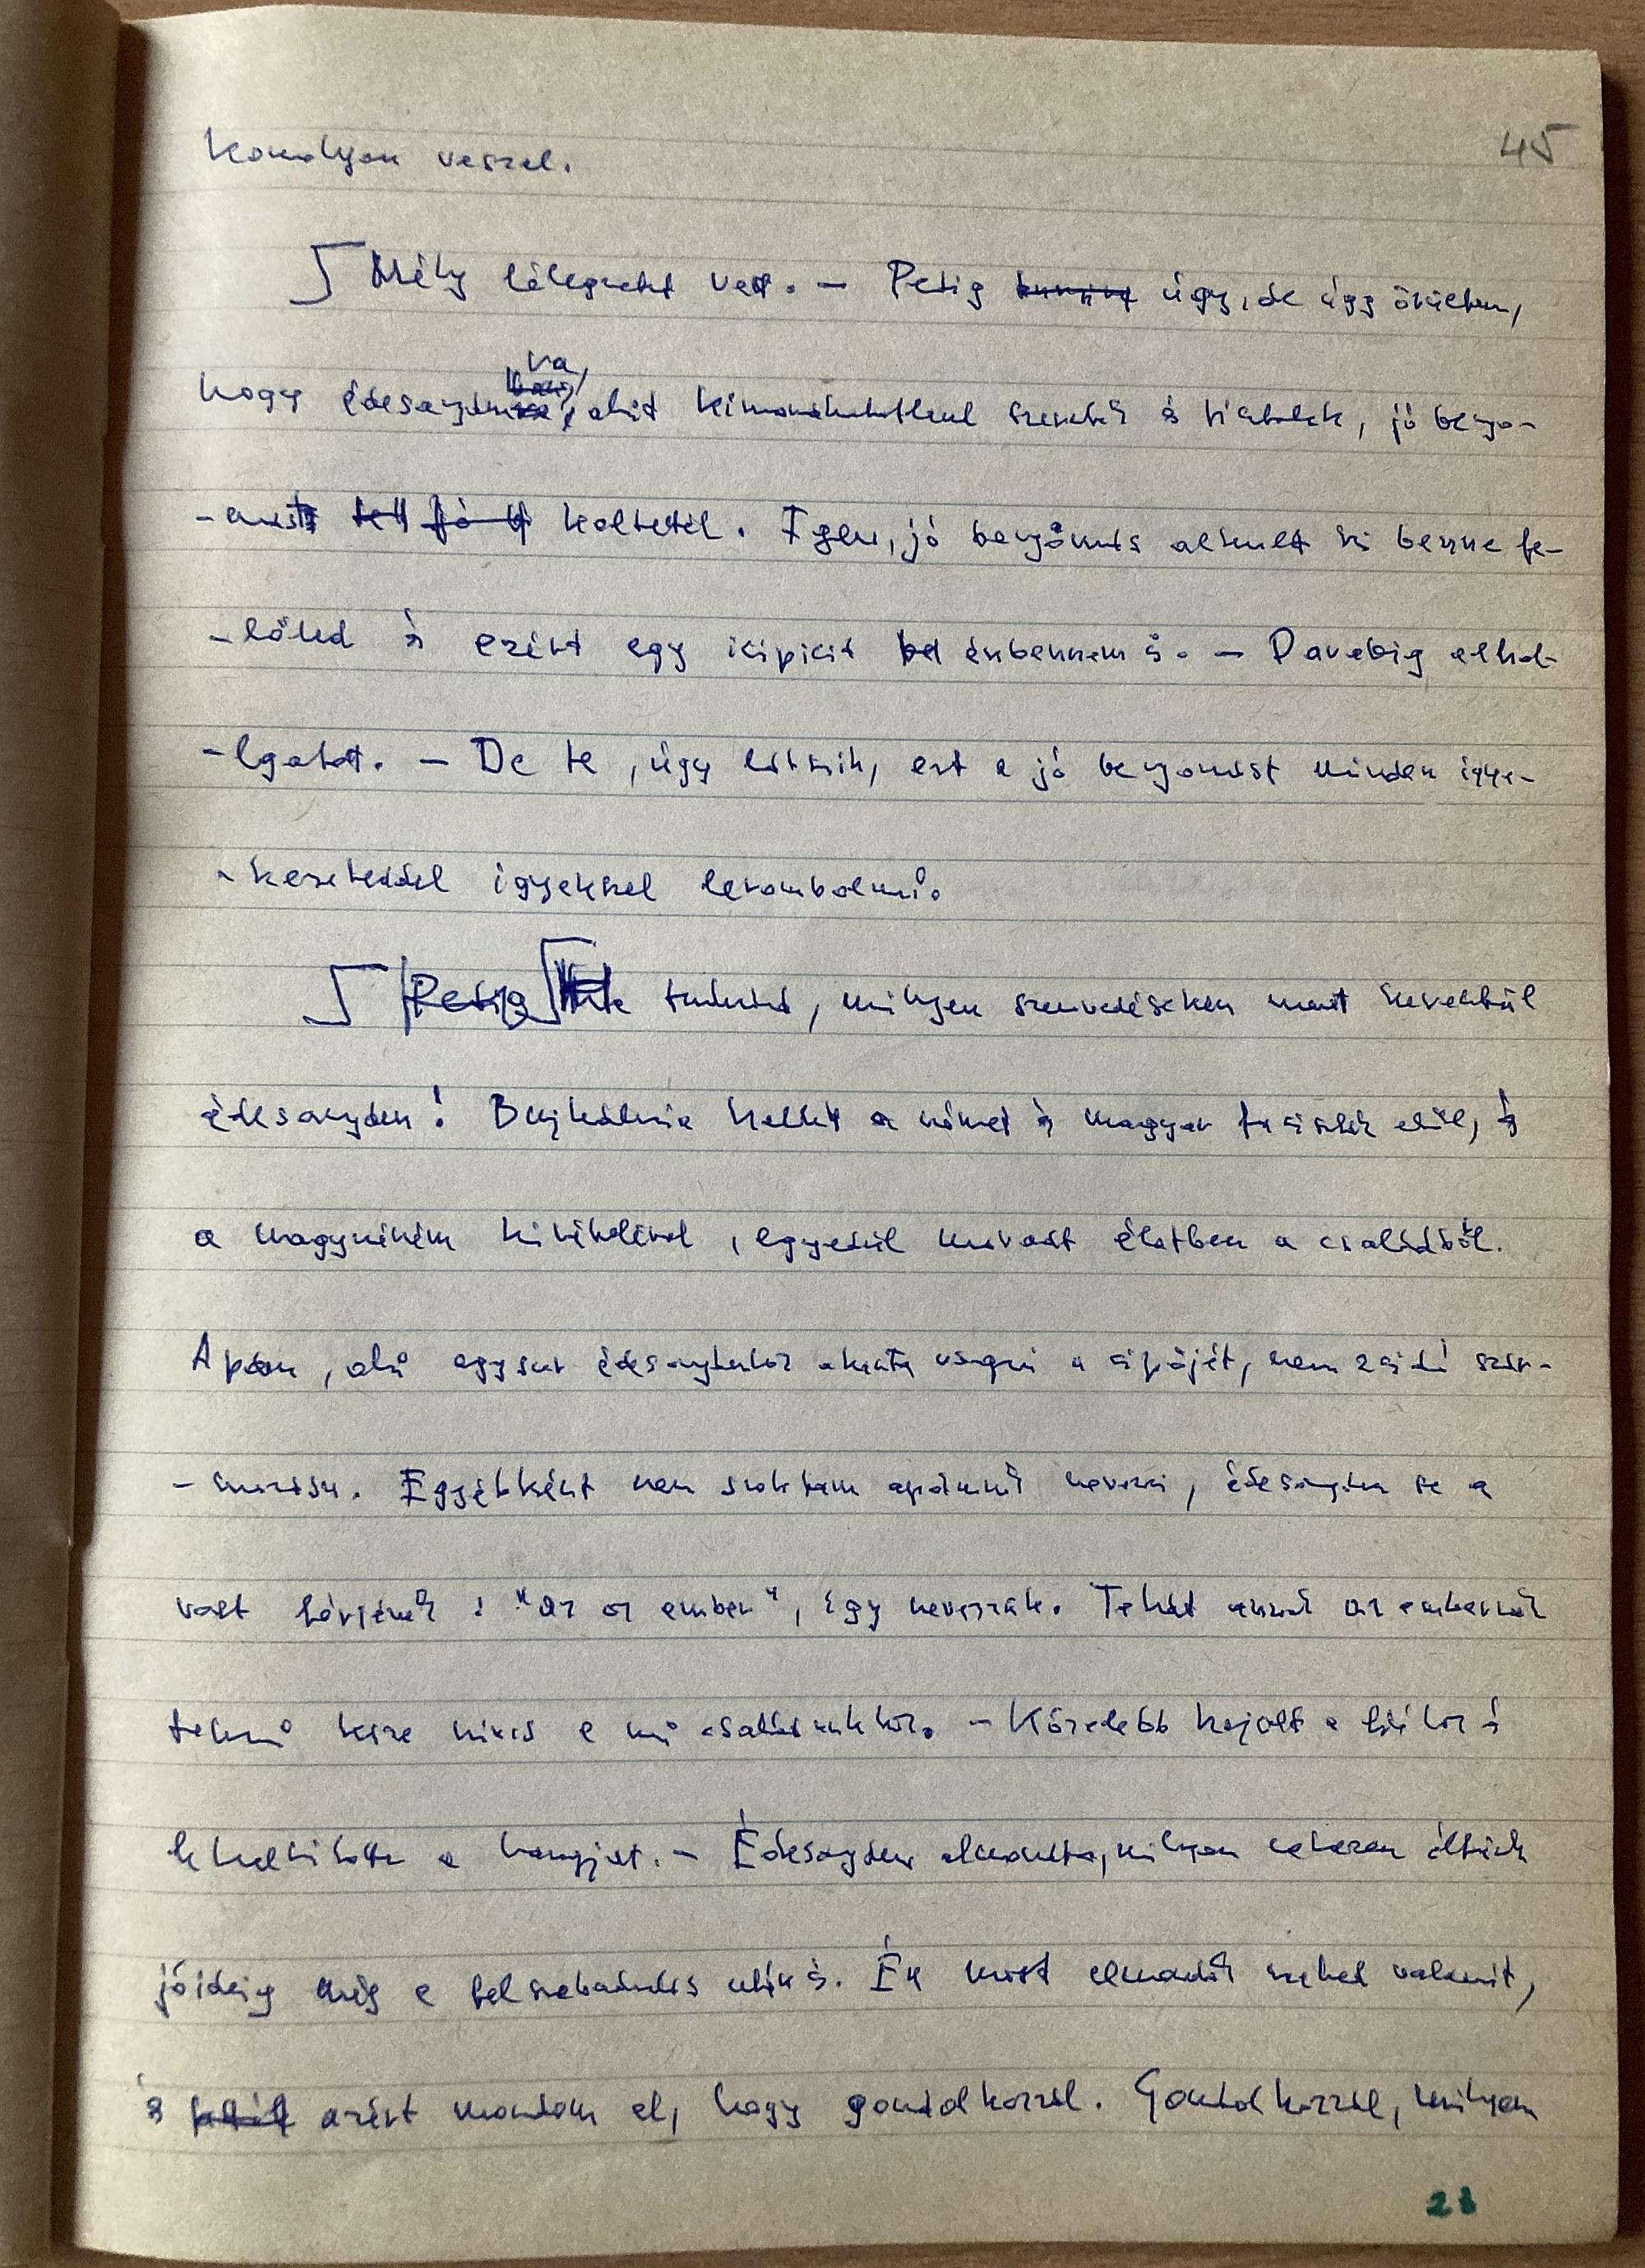 45
komolyan veszel.
Mély lélegzetet vett. — Pedig úgy, de úgy örültem,
hogy édesanyámra, akit kimondhatatlanul szeretek és tisztelek, jó benyo-
-mást keltettél. Igen, jó benyomás alakult ki benne fe-
-lőled és ezért egy icipicit énbennem is. — Darabig elhal-
-lgatott. — De te, úgy látszik, ezt a jó benyomást minden igye-
-kezeteddel igyekszel lerombolni.
Pedig Ha tudnád, milyen szenvedéseken ment keresztül
édesanyám! Bujkálnia kellett a német és magyar fasiszták elől, és
a nagynéném kivételével, egyedül maradt életben a családból.
Apám, aki egyszer édesanyámhoz akarta vágni a cipőjét, nem zsidó szár-
-mazású. Egyébként nem szoktam apámnak nevezni, édesanyám se a
volt férjének: "az az ember", így nevezzük. Tehát annak az embernek
semmi köze nincs a mi családunkhoz. — Közelebb hajolt a fiúhoz és
lehalkította a hangját. — Édesanyám elmondta, milyen nehezen éltünk
jóideig még a felszabadulás után is. Én most elmondok neked valamit,
és azért mondom el, hogy gondolkozzál. Gondolkozzál, milyen
21